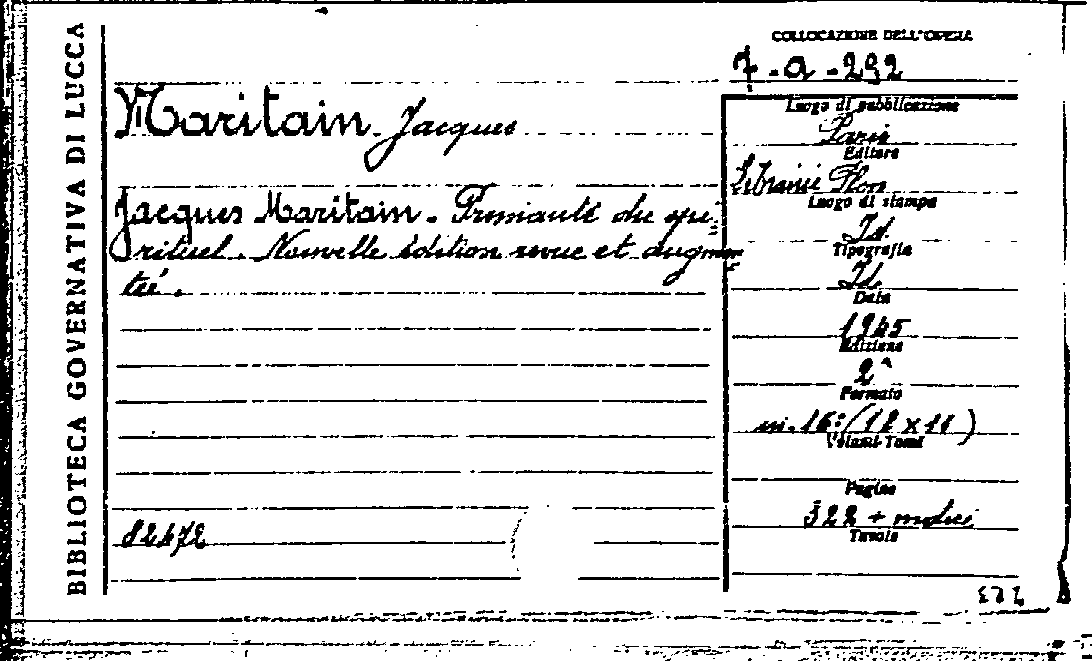 BIBLIOTECA GOVERNATIVA DI LUCCA
COLLOCAZIONE DELL'OPERA
7-a-292
Maritain Jacques
Jacques Maritain. Primauté du spi-
rituel. Nouvelle édition revue et augmen
teé.
Luogo di pubblicazione
Paris
Editore
Librairie Plon
Luogo di stampa
Id.
Tipografia
Id.
Data
Edizione
2ª
Formato
in.16:
Volumi-Tomi
Pagine
322 + indici
Tavole